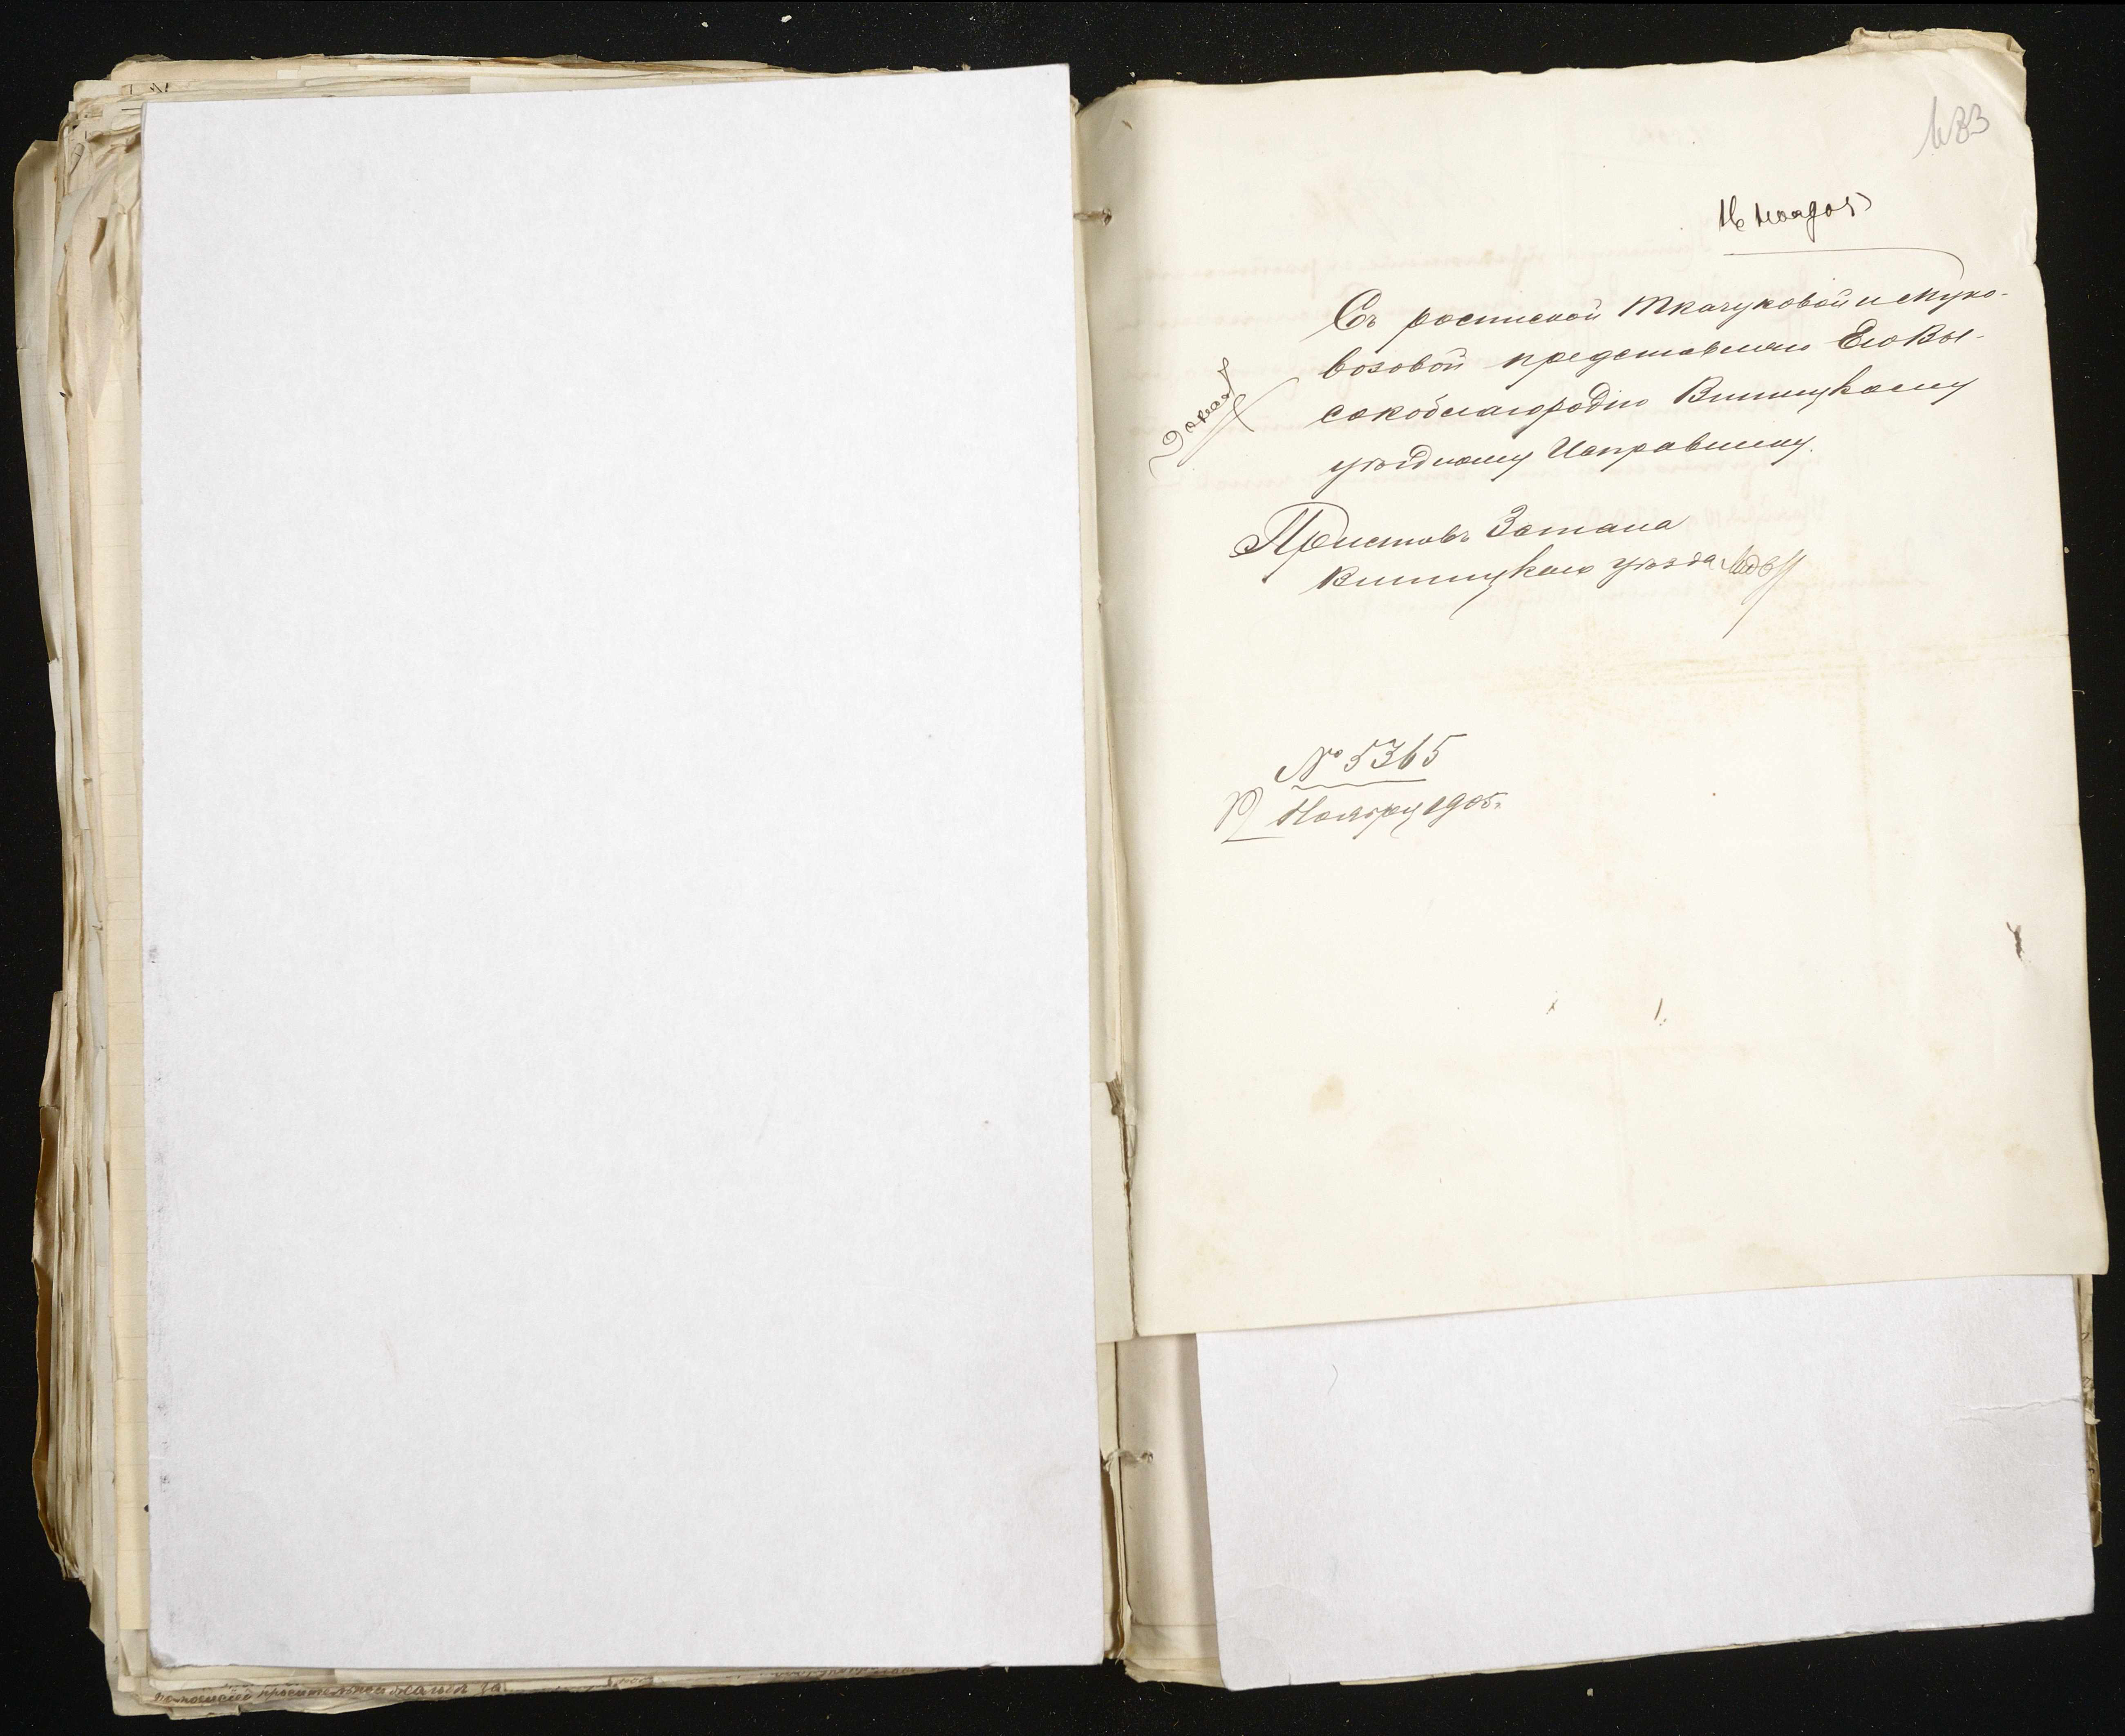 433
16 Нояб 905
Съ роспиской Ткачуковой и Муко-
возовой представляю Его Вы-
сокоблагородію Винницкому
уѣздному Исправнику.
Приставъ 3 стана
Винницкаго уѣзда
№ 5365
Ноября 1905 г.